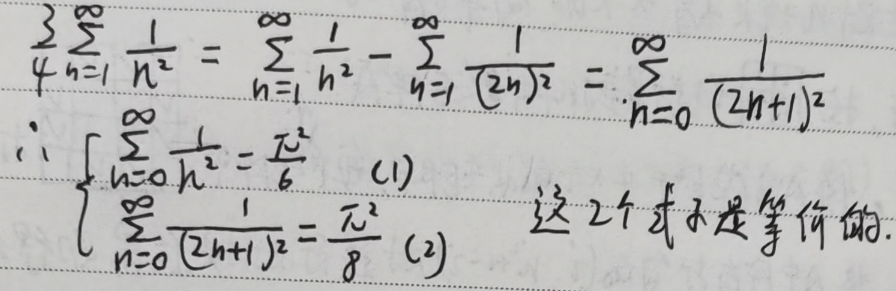 3/4 ∑_{n=1}^{∞} 1/n² = ∑_{n=1}^{∞} 1/n² − ∑_{n=1}^{∞} 1/(2n)² = ∑_{n=0}^{∞} 1/(2n+1)²
∴ { ∑_{n=0}^{∞} 1/n² = π²/6 (1)
∑_{n=0}^{∞} 1/(2n+1)² = π²/8 (2) 这2个式子是等价的.